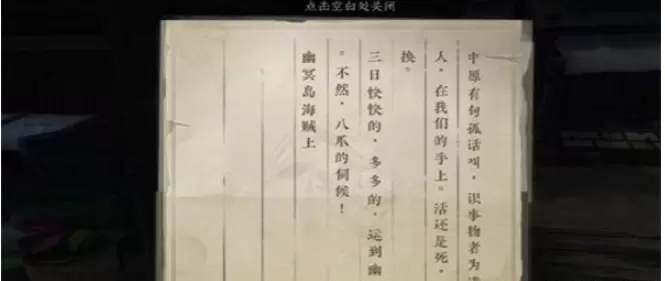 点击空白处关闭
中原有句孤话叫，识事物者为
人，在我们的手上。活还是死，
换。
三日快快的，多多的，运到幽
。不然，八爪的伺候！
幽冥岛海贼上